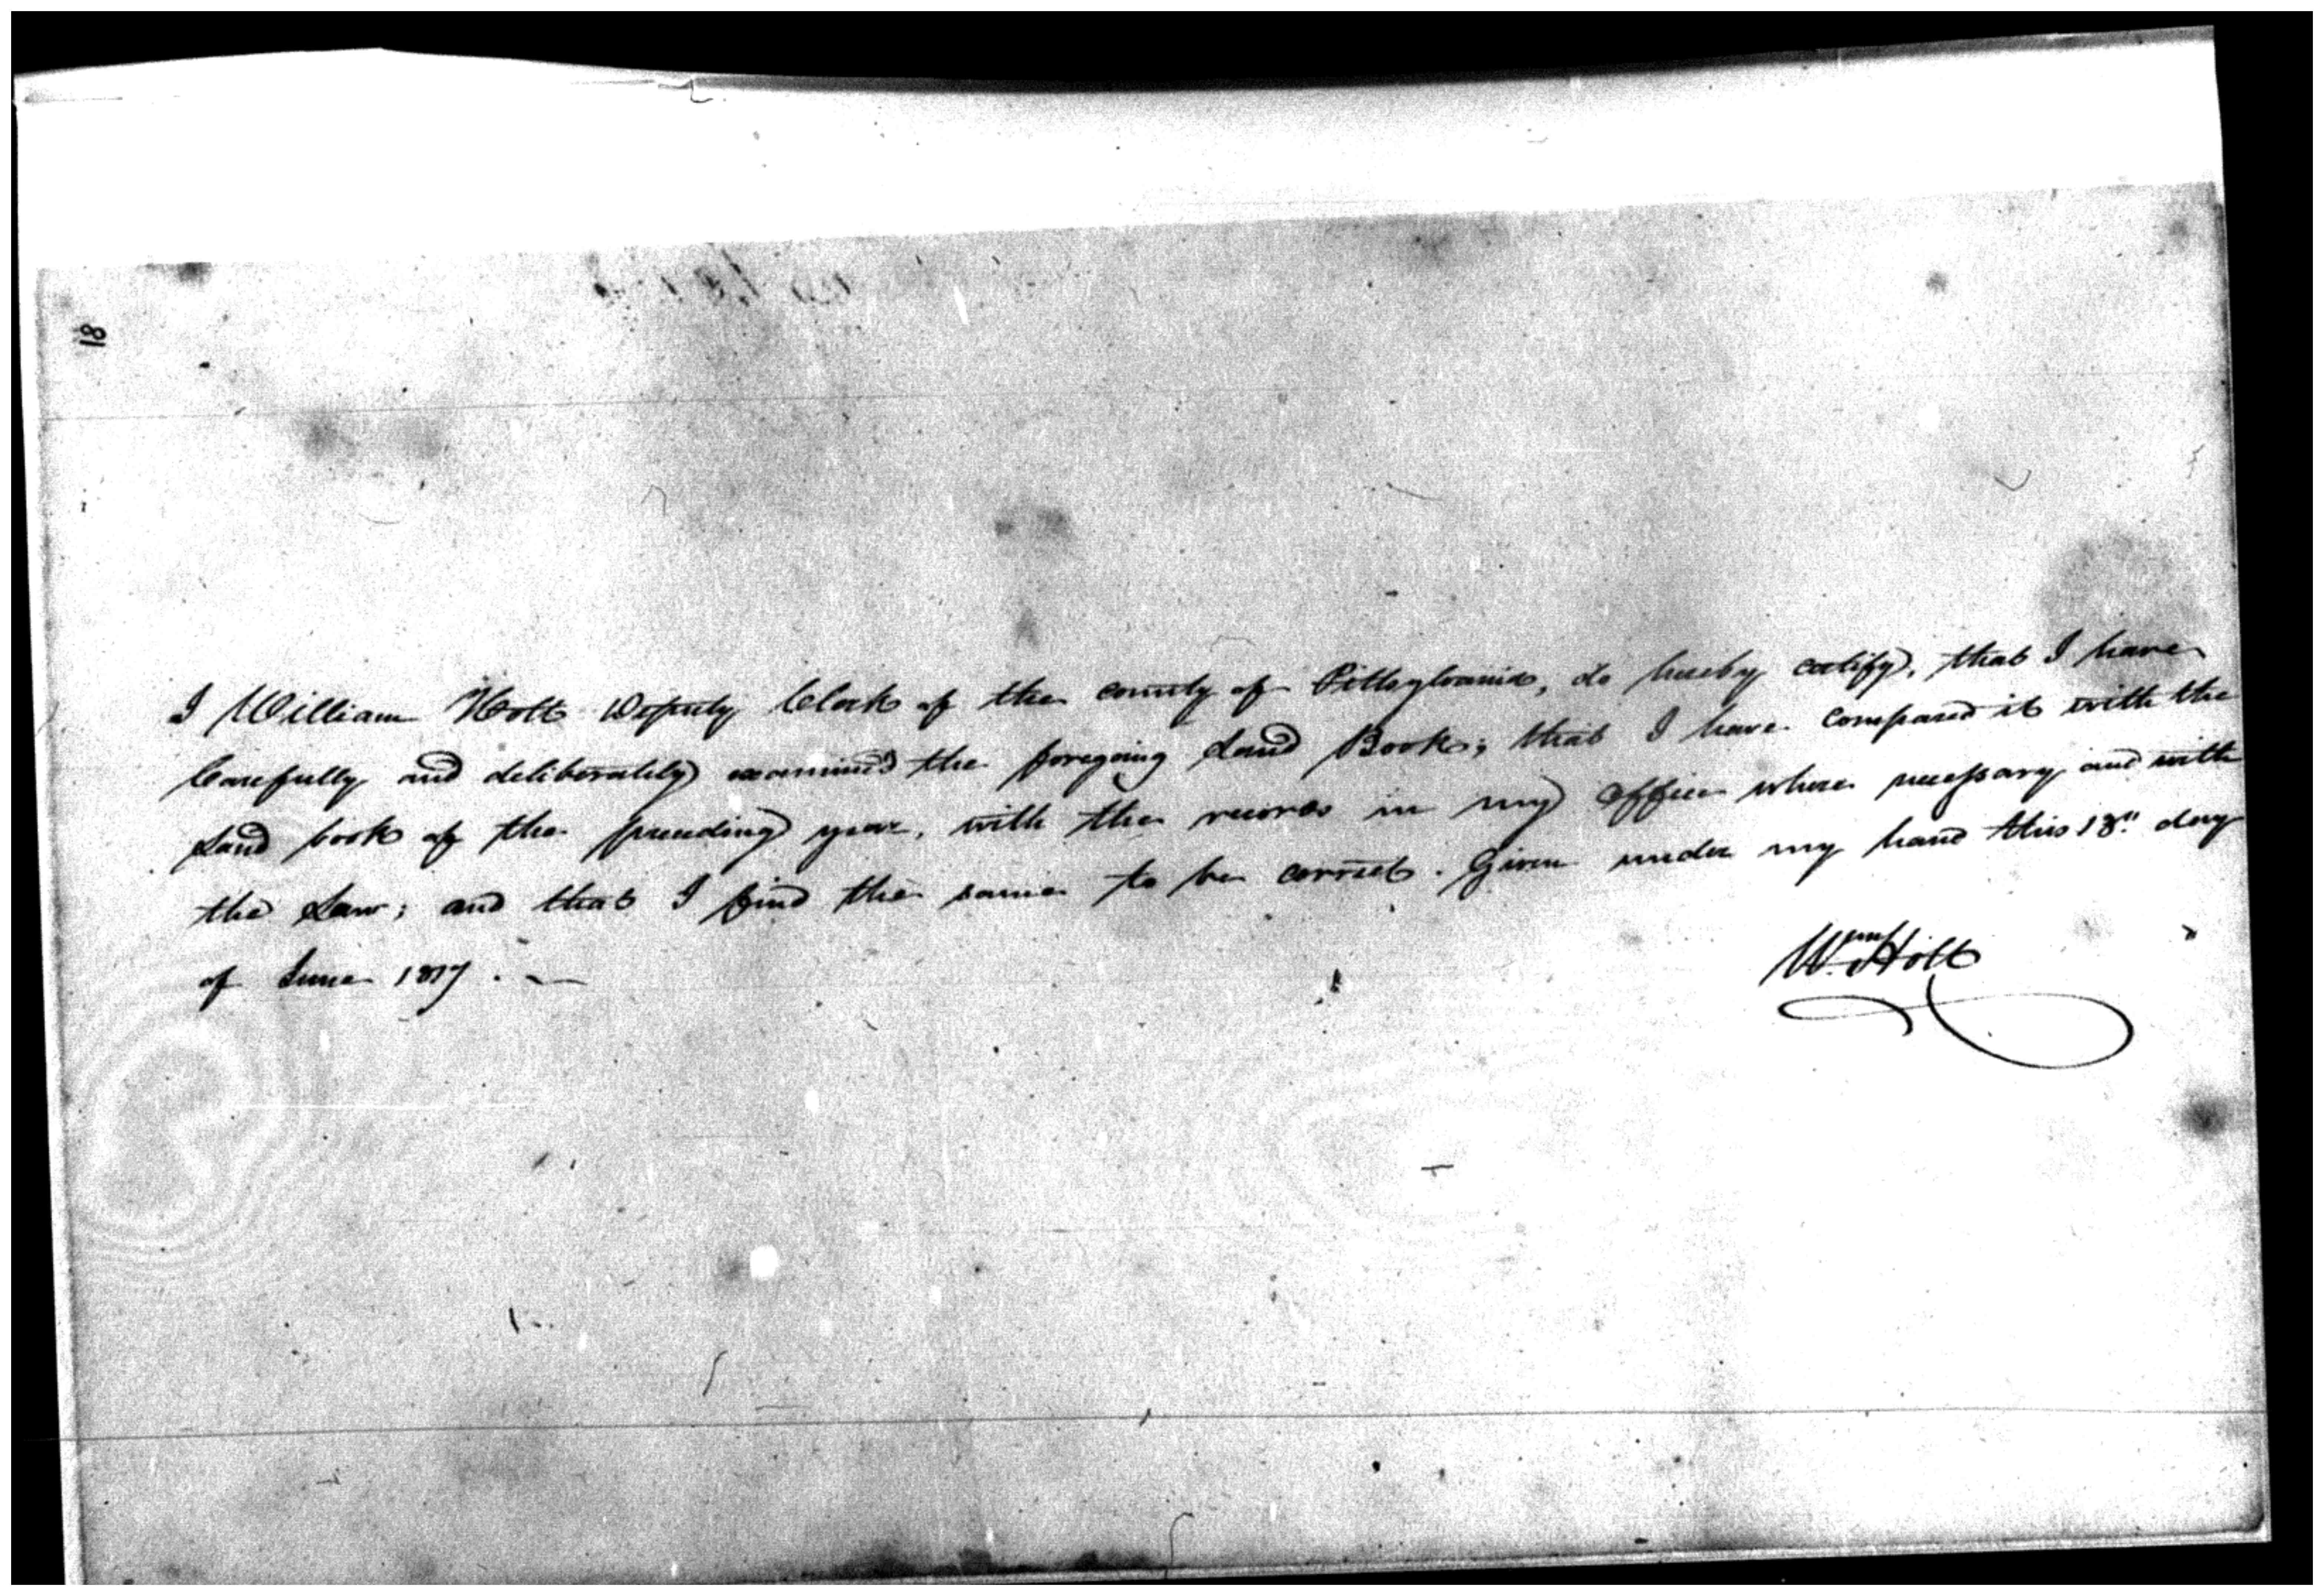 18
I William Holt Deputy Clerk of the county of Pittsylvania, do hereby certify, that I have
Carefully and deliberately examined the foregoing Land Book; that I have compared it with the
Land book of the preceeding year, with the records in my office where necessary and with
the Law; and that I find the same to be correct. Given under my hand this 18th day
of June 1817. —
Wm Holt